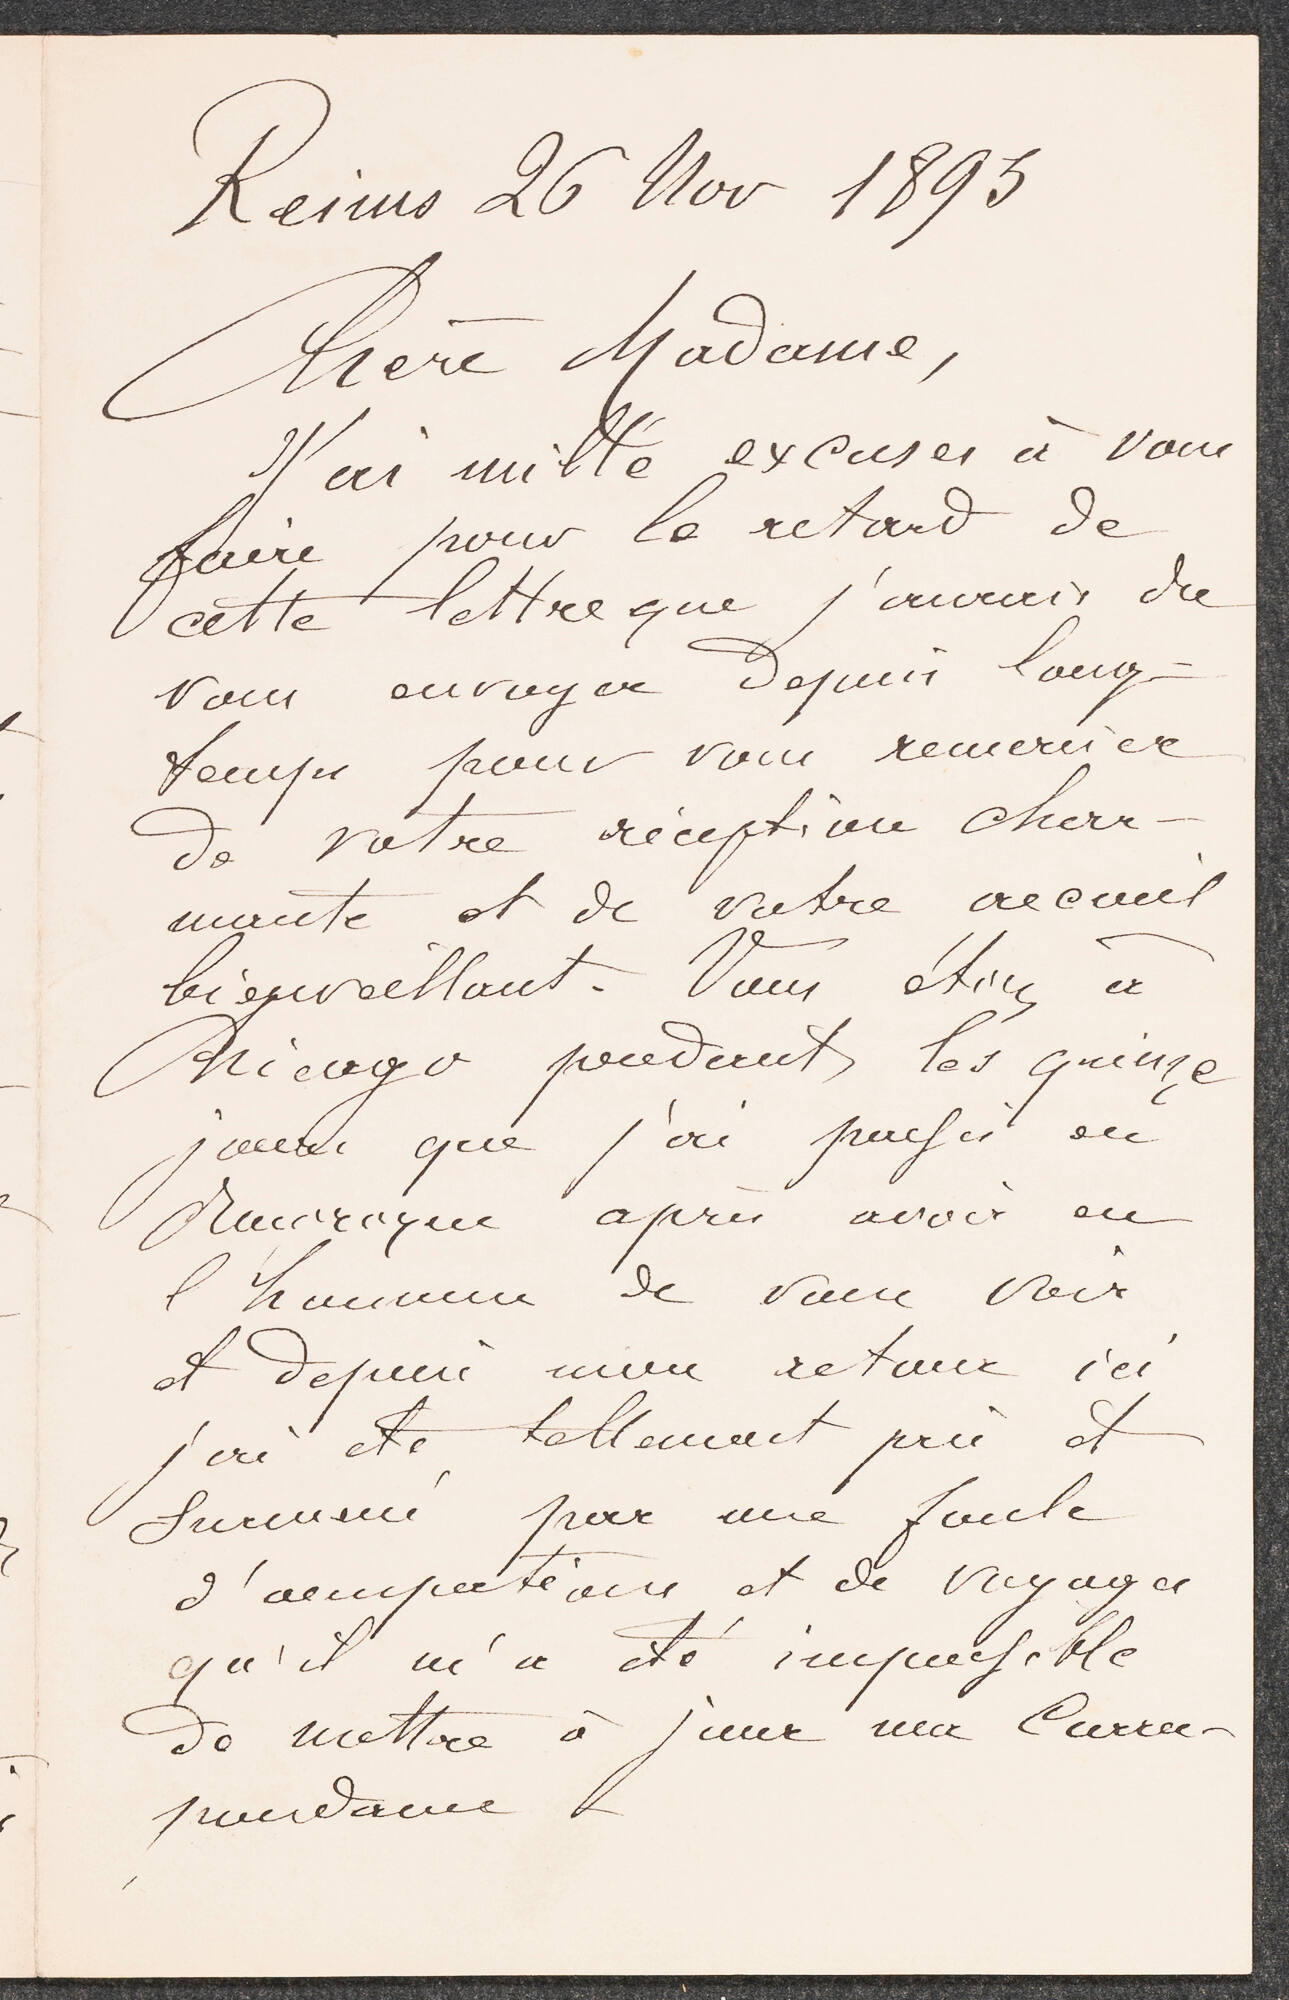 Reims 26 Nov 1893
Chère Madame,
J'ai mille excuses à vous
faire pour le retard de
cette lettre que j'aurais du
vous envoyer depuis long-
temps pour vous remercier
de votre réception char-
mante et de votre accueil
bienveillant. Vous étiez à
Chicago pendant les quinze
jours que j'ai passés en
Amérique après avoir eu
l'honneur de vous voir
et depuis mon retour ici
j'ai été tellement pris et
surmené par une foule
d'occupations et de voyages
qu'il m'a été impossible
de mettre à jour ma Corres-
pondance